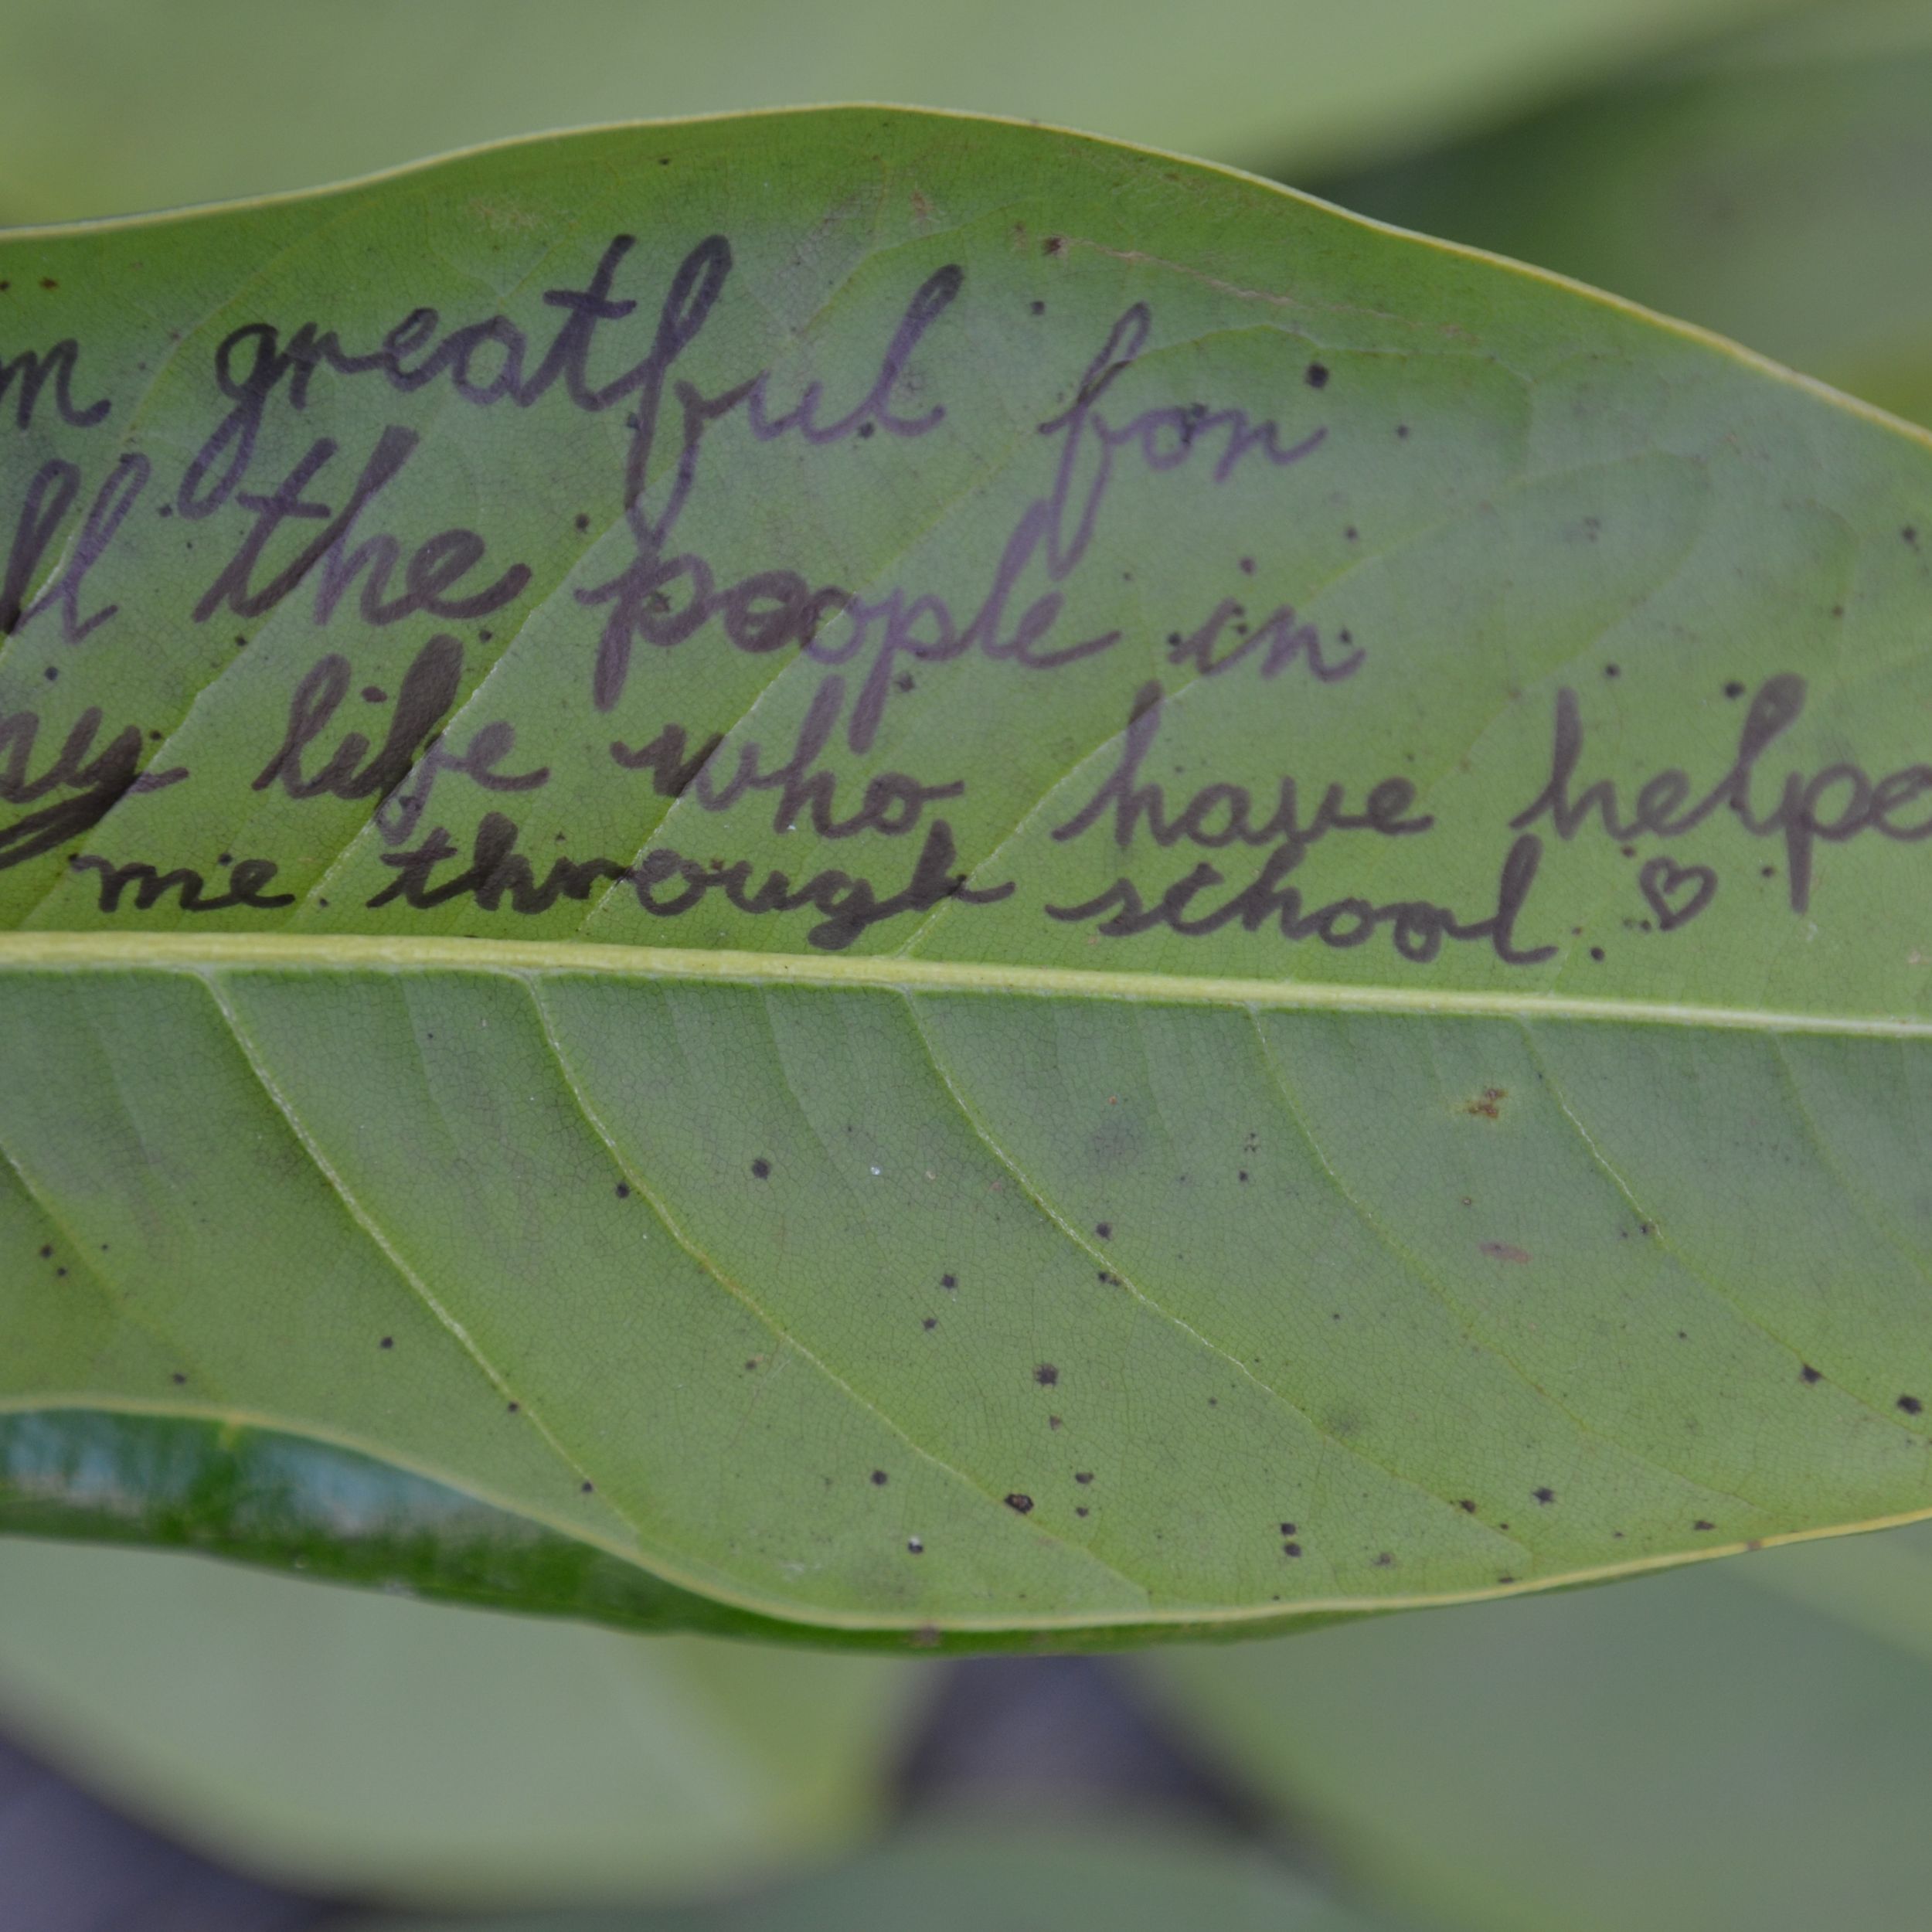 m greatful for
ll the people in
my life who have helpe
me through school. ♡